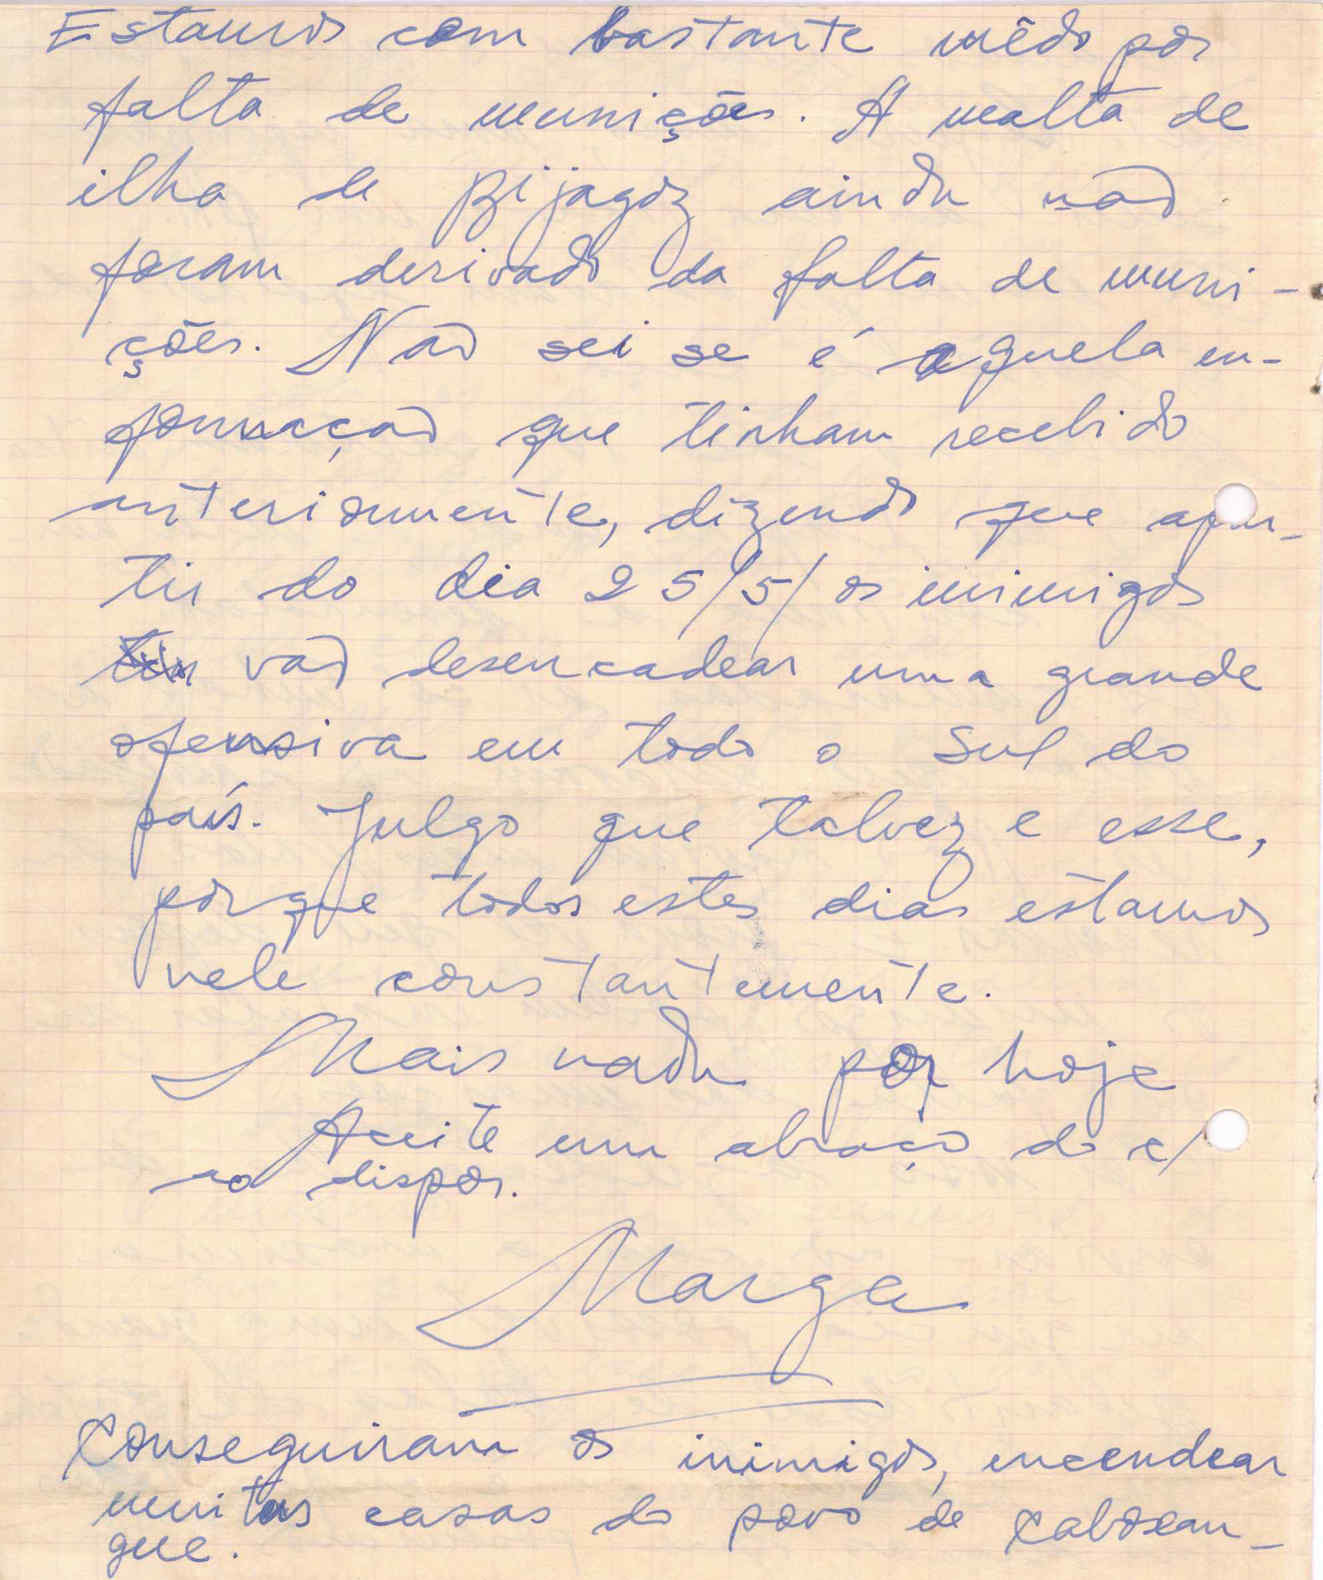 Estamos com bastante mêdo por
falta de munições. A malta de
ilha de Bijagoz ainda não
foram derivado da falta de muni-
ções. Não sei se é aquela en-
formação que tinham recebido
anteriormente, dizendo que apar-
tir do dia 25/5/ os inimigos
vão desencadear uma grande
ofensiva em todo o Sul do
país. Julgo que talvez e esse,
porque todos estes dias estamos
nele constantemente.
Mais nada por hoje
Aceite um abraço do c/
ao dispor.
Marga
Conseguiram os inimigos, encendear
muitas casas do povo de Caboxan-
gue.